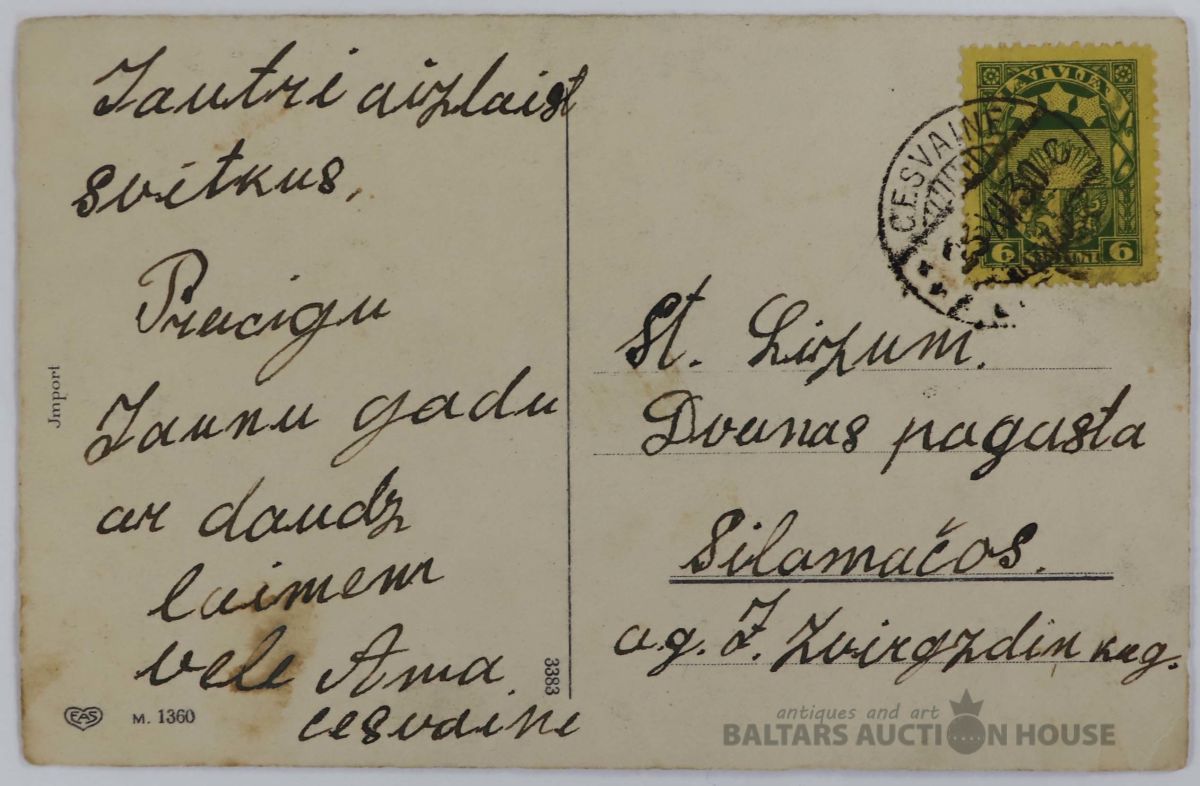 Jautri aizlaist
svētkus,
Priecigu
Jaunu gadu
ar daudz
laimem
vele Ama.
cesvaine
Jmport
EAS
M. 1360
3383
LATVIJA
CESVAINE
XII 30
6 6
St. Lizum.
Druenas pagasta
Silamačos.
ag. J. Zvirgzdin kng.
antiques and art
BALTARS AUCTION HOUSE